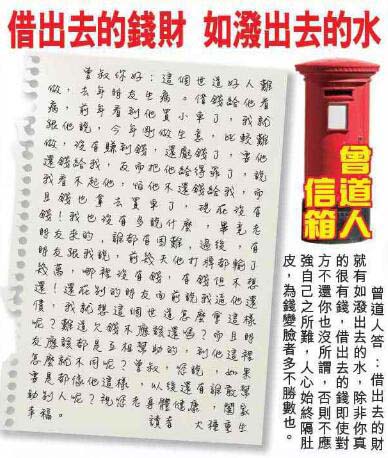 借出去的錢財 如潑出去的水
曾叔你好：這個世道好人難
做，去年朋友生病。借錢給他看
病，前年看到他買小車了，我就
跟他說，今年剛做生意，比較難
做，沒有賺到錢，還虧錢了，害他
還錢給我，反而把他給得罪了，說
我看不起他，怕他不還錢給我，而
且錢也拿去買車了，現在沒有
錢！我也沒有多說什麼，畢竟老
朋友來的，誰都有困難，過後，有
朋友跟我說，前幾天他打牌都輸了
幾萬，哪裡沒有錢，有錢但不想
還！還在別的朋友面前說我逼他還
債，我就想這個世道怎麼會這樣
呢？難道欠錢不應該還嗎？而且朋
友應該都是互相幫助的，到他這裡
怎麼就不同呢？曾叔，您說，如果
害是都像他這樣，以後還有誰敢幫
助別人呢？祝您老身體健康，闔家
幸福。
讀者 大埔章生
曾道人
信箱
曾道人答：借出去的財
就有如潑出去的水，除非你真
的很有錢，借出去的錢即使對
方不還你也沒所謂，否則不應
強自己之所難，人心始終隔肚
皮，為錢變臉者多不勝數也。